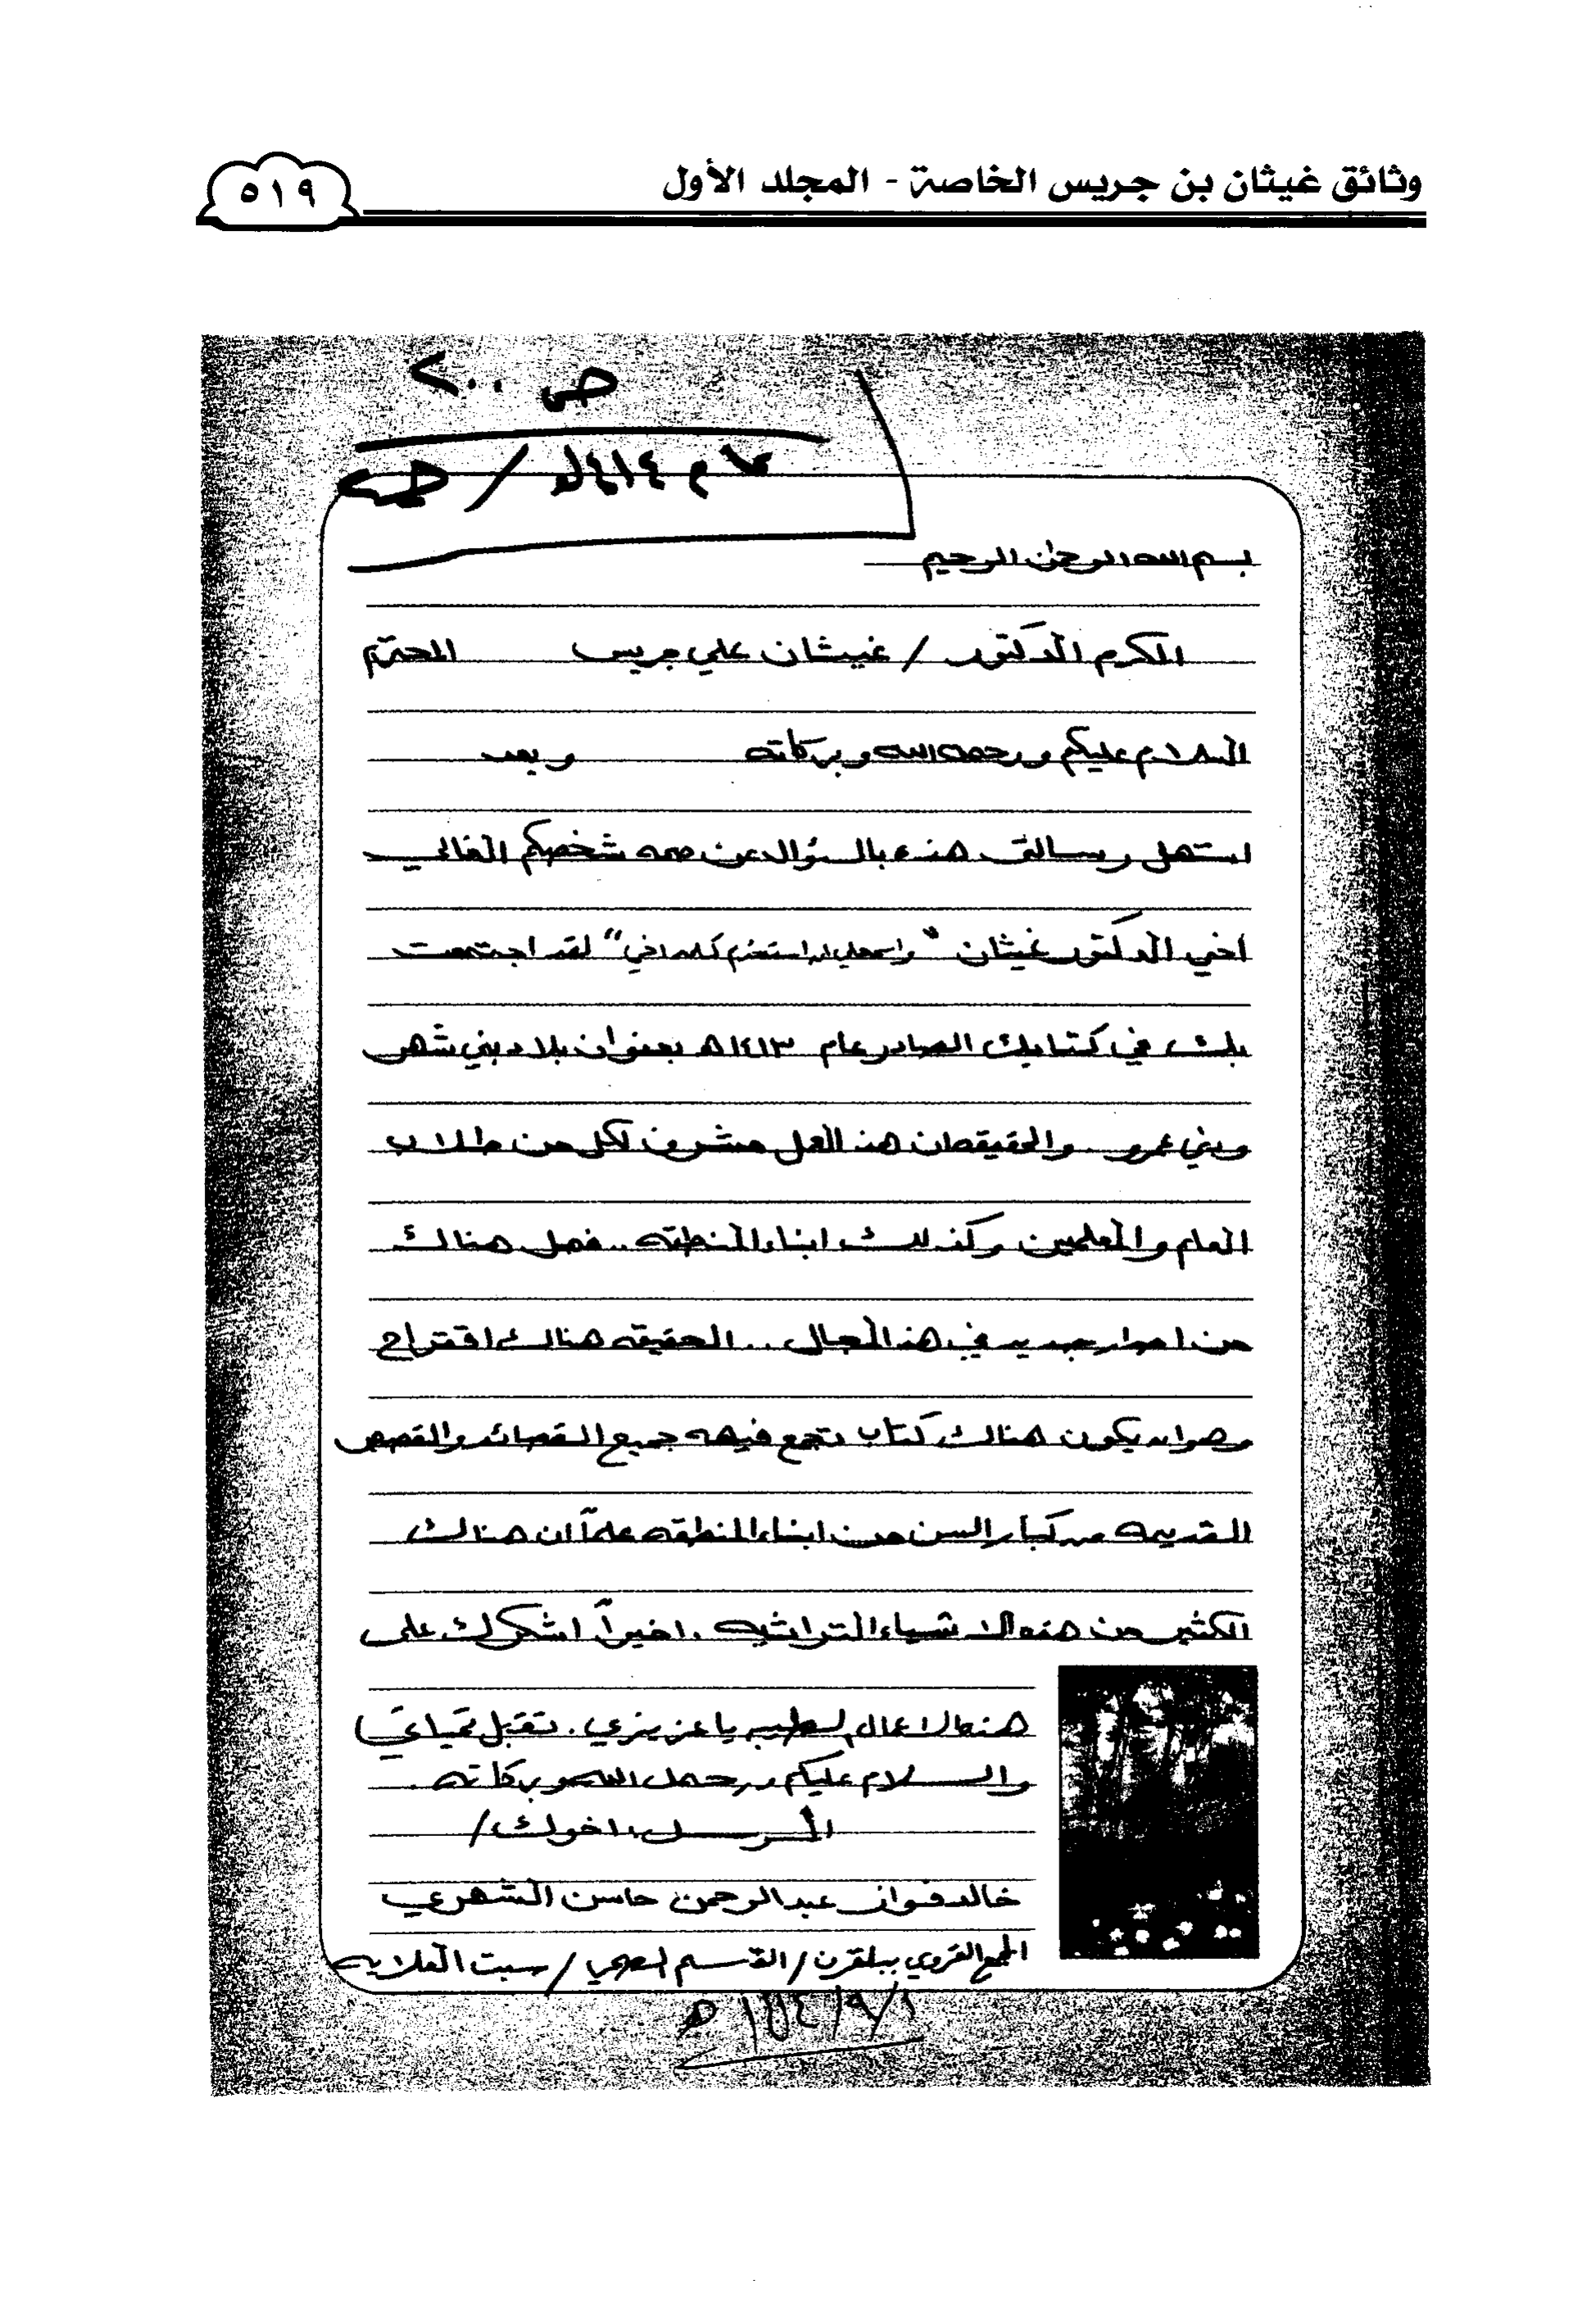 وثائق غيثان بن جريس الخاصة - المجلد الأول
٥١٩
ص ٢٠٠
عام ١٤١٤هـ /
بسم الله الرحمن الرحيم
المكرم الدكتور / غيثان علي جريس المحترم
السلام عليكم ورحمه الله وبركاته وبعد
استهل رسالتي هذه بالسؤال عن صحه شخصكم الغالي
اخي الدكتور غيثان "واسمحلي ان استخدم كلمه اخي" لقد اجتمعت
بك في كتابك الصادر عام ١٤١٣ه بعنوان بلاد بني شهر
وبني عمرو. والحقيقه ان هذا العمل مشرف لكل من طلاب
العام والمعلمين وكذلك ابناء المنطقه.. فهل هنالك
من اصدار جديد في هذا المجال .. الحقيقه هنالك اقتراح
وهو ان يكون هنالك كتاب تجمع فيهه جميع القصائد والقصص
القديمه من كبار السن من ابناء المنطقه علماً ان هنالك
الكثير من هذه الاشياء التراثيه . اخيراً اشكرك على
هذه الاعمال الطيبه يا عزيزي. تقبل تحياتي
والسلام عليكم ورحمة الله وبركاته.
المرسل اخوك/
خالد فواز عبدالرحمن حاسن الشهري
المجمع القروي ببلقرن/ القسم الصحي / سبت العلايه
١/ ٩/ ١٤١٤ هـ